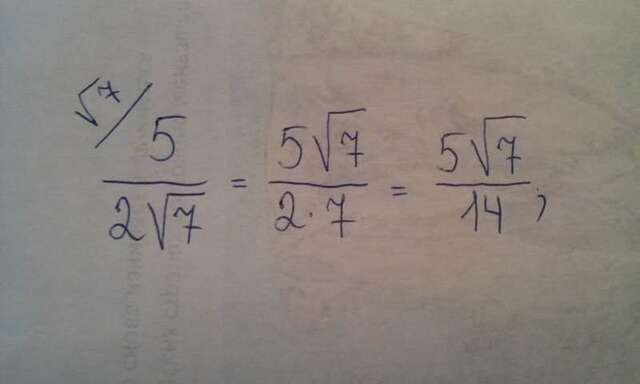 √7/ 5/(2√7) = 5√7/(2·7) = 5√7/14;